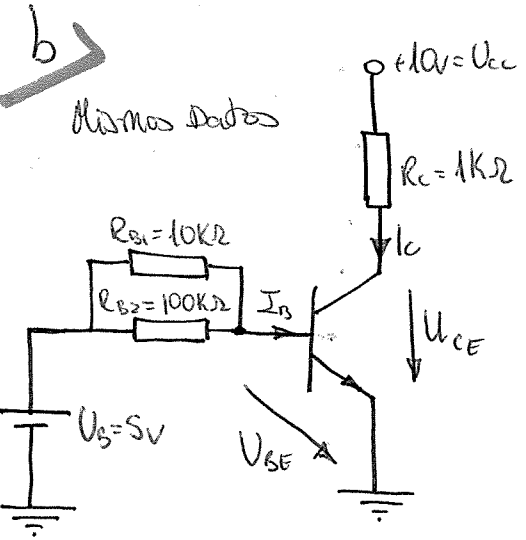 b
Mismos Datos
+10V = Ucc
Rc = 1KΩ
Ic
RB1 = 10KΩ
RB2 = 100KΩ
IB
UCE
UB = 5V
UBE